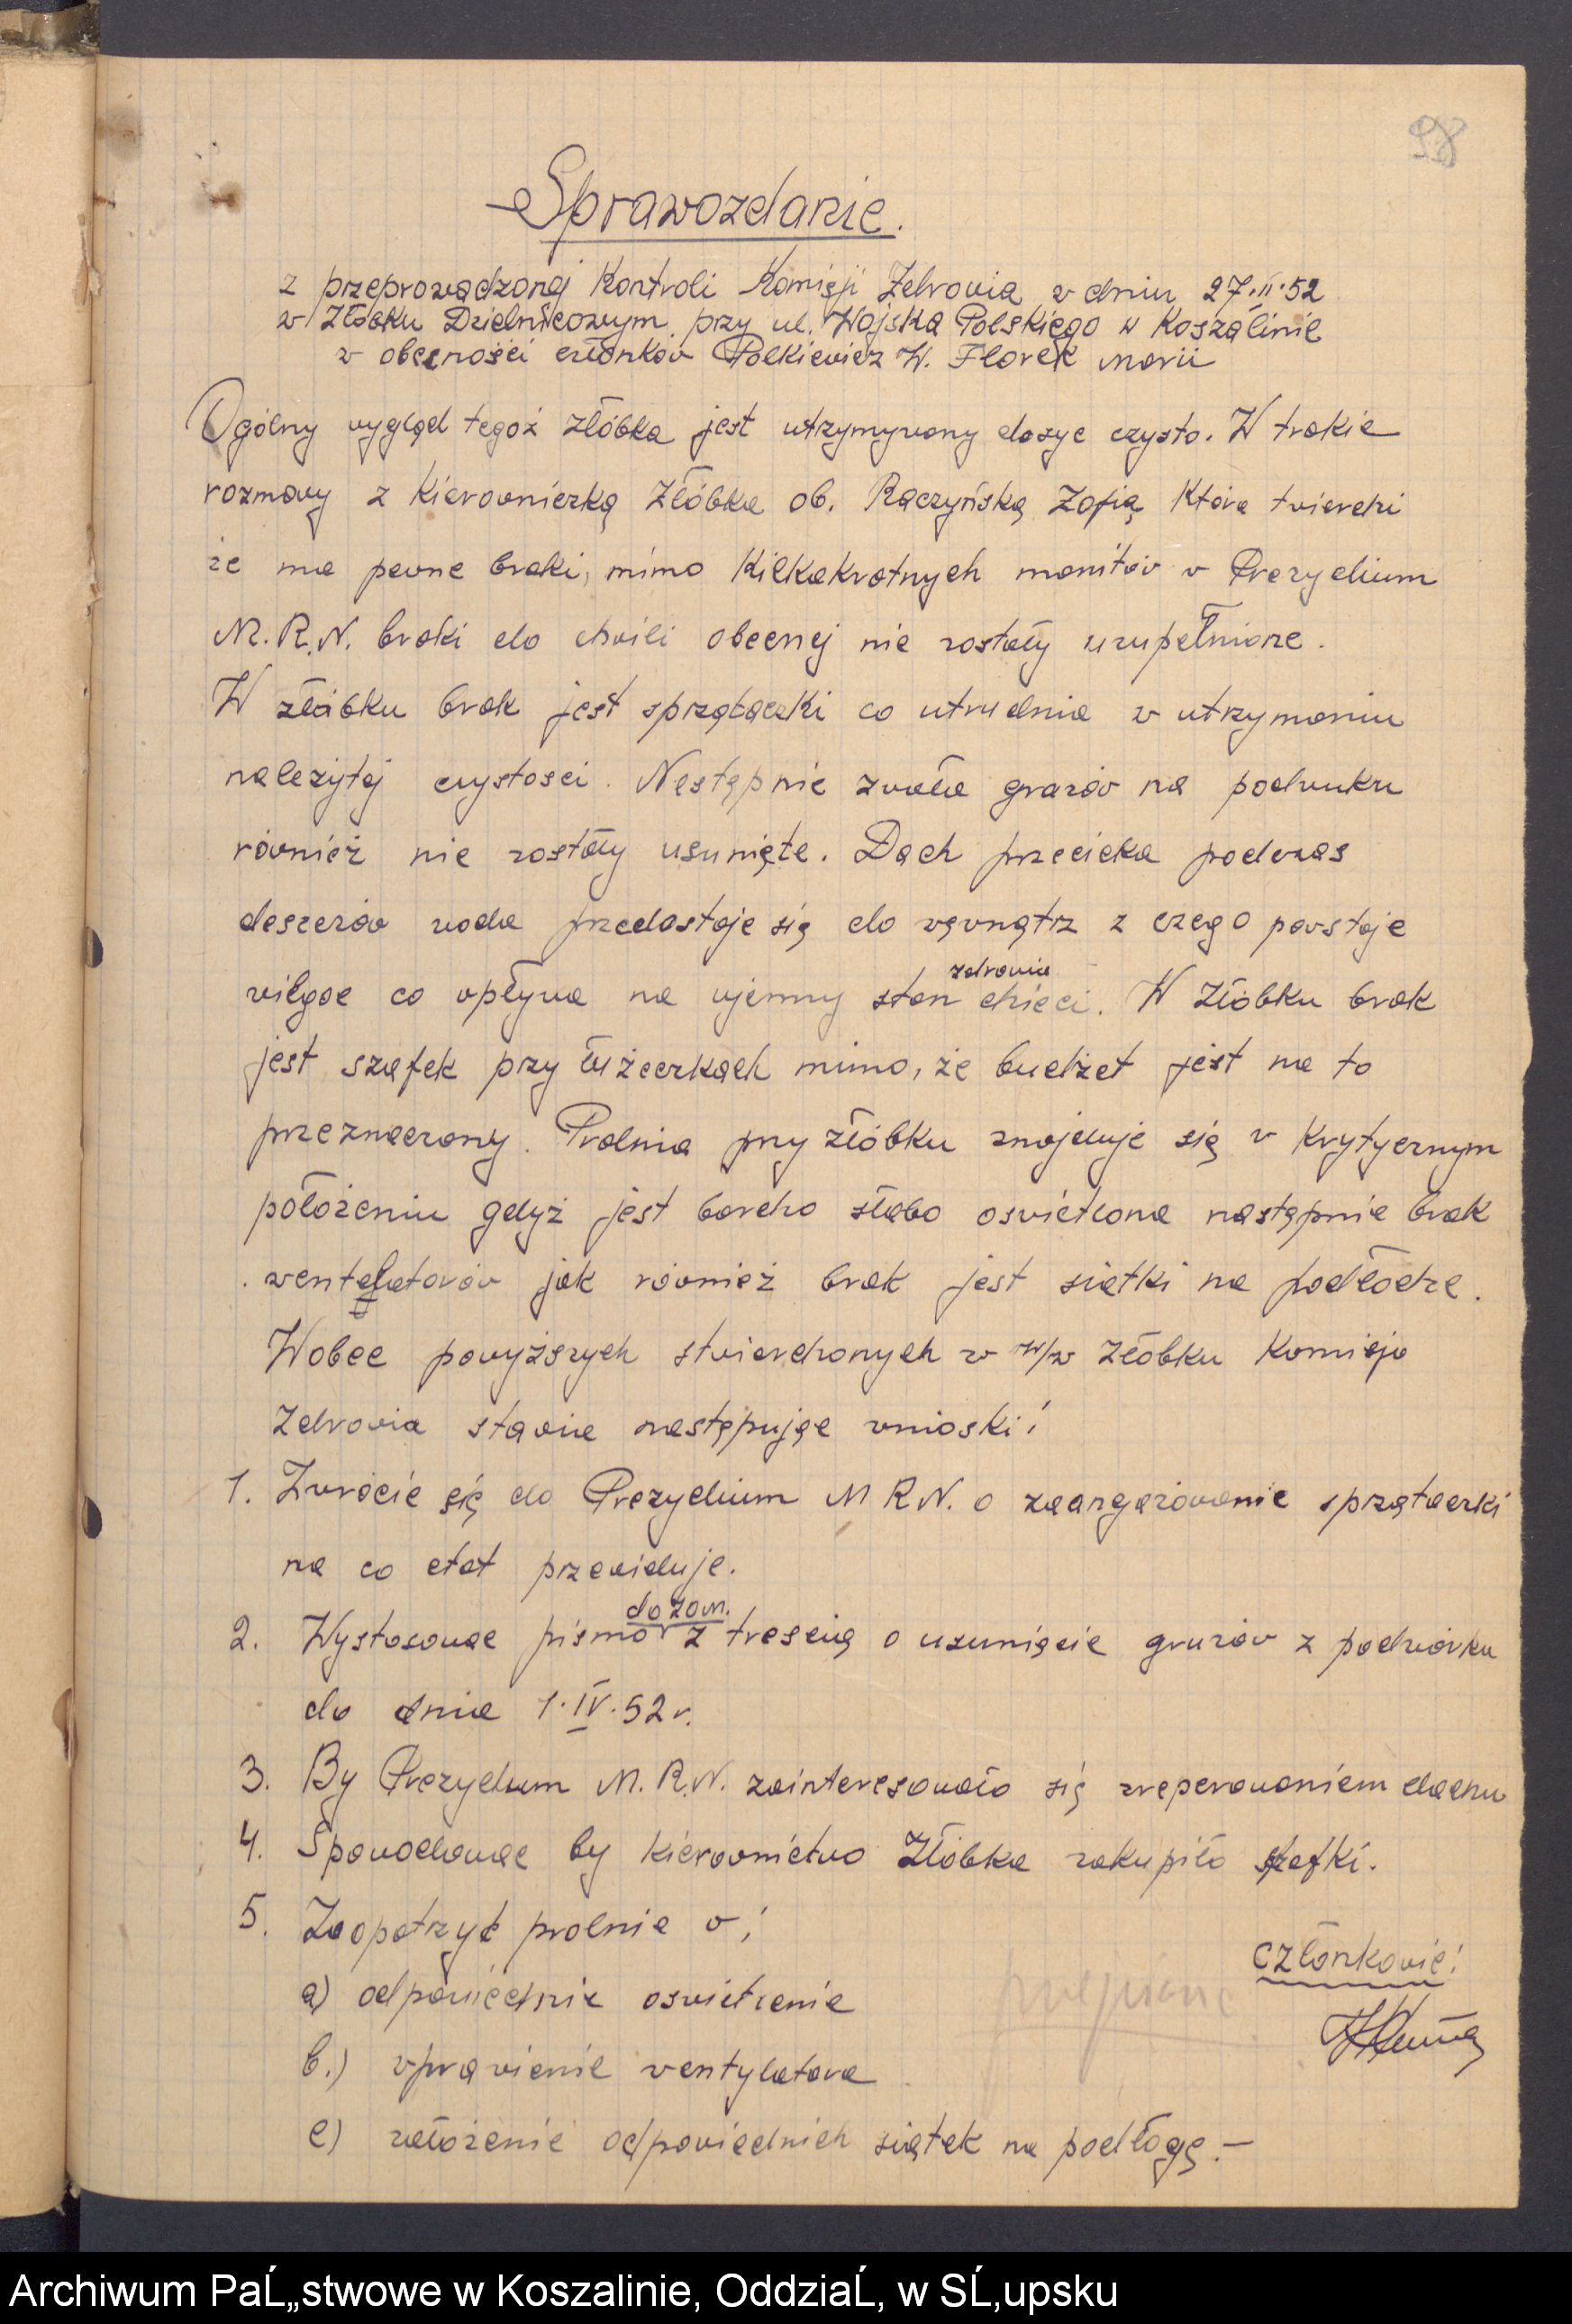 98
Sprawozdanie.
z przeprowadzonej Kontroli Komisji Zdrowia w dniu 27.II.52
w Żłobku Dzielnicowym przy ul. Wojska Polskiego w Koszalinie
w obecności członków Polkiewicz W. Florek Marii
Ogólny wygląd tegoż żłóbka jest utrzymywany dosyc czysto. W trakie
rozmowy z Kierowniczką Żłóbka ob. Raczyńską Zofią która twierdzi
że ma pewne braki, mimo Kilkakrotnych monitów w Prezydium
M.R.N. braki do chwili obecnej nie zostały uzupełnione.
W żłóbku brak jest sprzątaczki co utrudnia w utrzymaniu
należytej czystosci. Następnie zwała gruzów na podwuku
również nie zostały usunięte. Dach przecieka podczas
deszczów woda przedostaje się do wewnątrz z czego powstaje
wilgoc co wpływa na ujemny stan zdrowia dzieci. W Żłóbku brak
jest szafek przy łużeczkach mimo, że budżet jest na to
przeznaczony. Pralnia przy żłóbku znajduje się w Krytycznym
położeniu gdyż jest bardzo słabo oswietlona następnie brak
wentylatorów jak również brak jest siatki na podłodze.
Wobec powyższych stwierdzonych w w/w Żłóbku Komisja
Zdrowia stawia następujące wnioski:
1. Zwrócic się do Prezydium M R N. o zaangażowanie sprzątaczki
na co etat przewiduje.
2. Wystosowac pismo do ZOM. z trescią o usunięcie gruzów z podwórka
do dnia 1.IV.52 r.
3. By Prezydium M.R.N. zainteresowało się zreperowaniem dachu
4. Spowodowac by kierownictwo Żłóbka zakupiło szafki.
5. Zaopatrzyć pralnie w:
a) odpowiednie oswietlenie
b.) wprawienie wentylatora
c) założenie odpowiednich siatek na podłogę.—
członkowie:
Archiwum PaĹ„stwowe w Koszalinie, OddziaĹ‚ w SĹ‚upsku